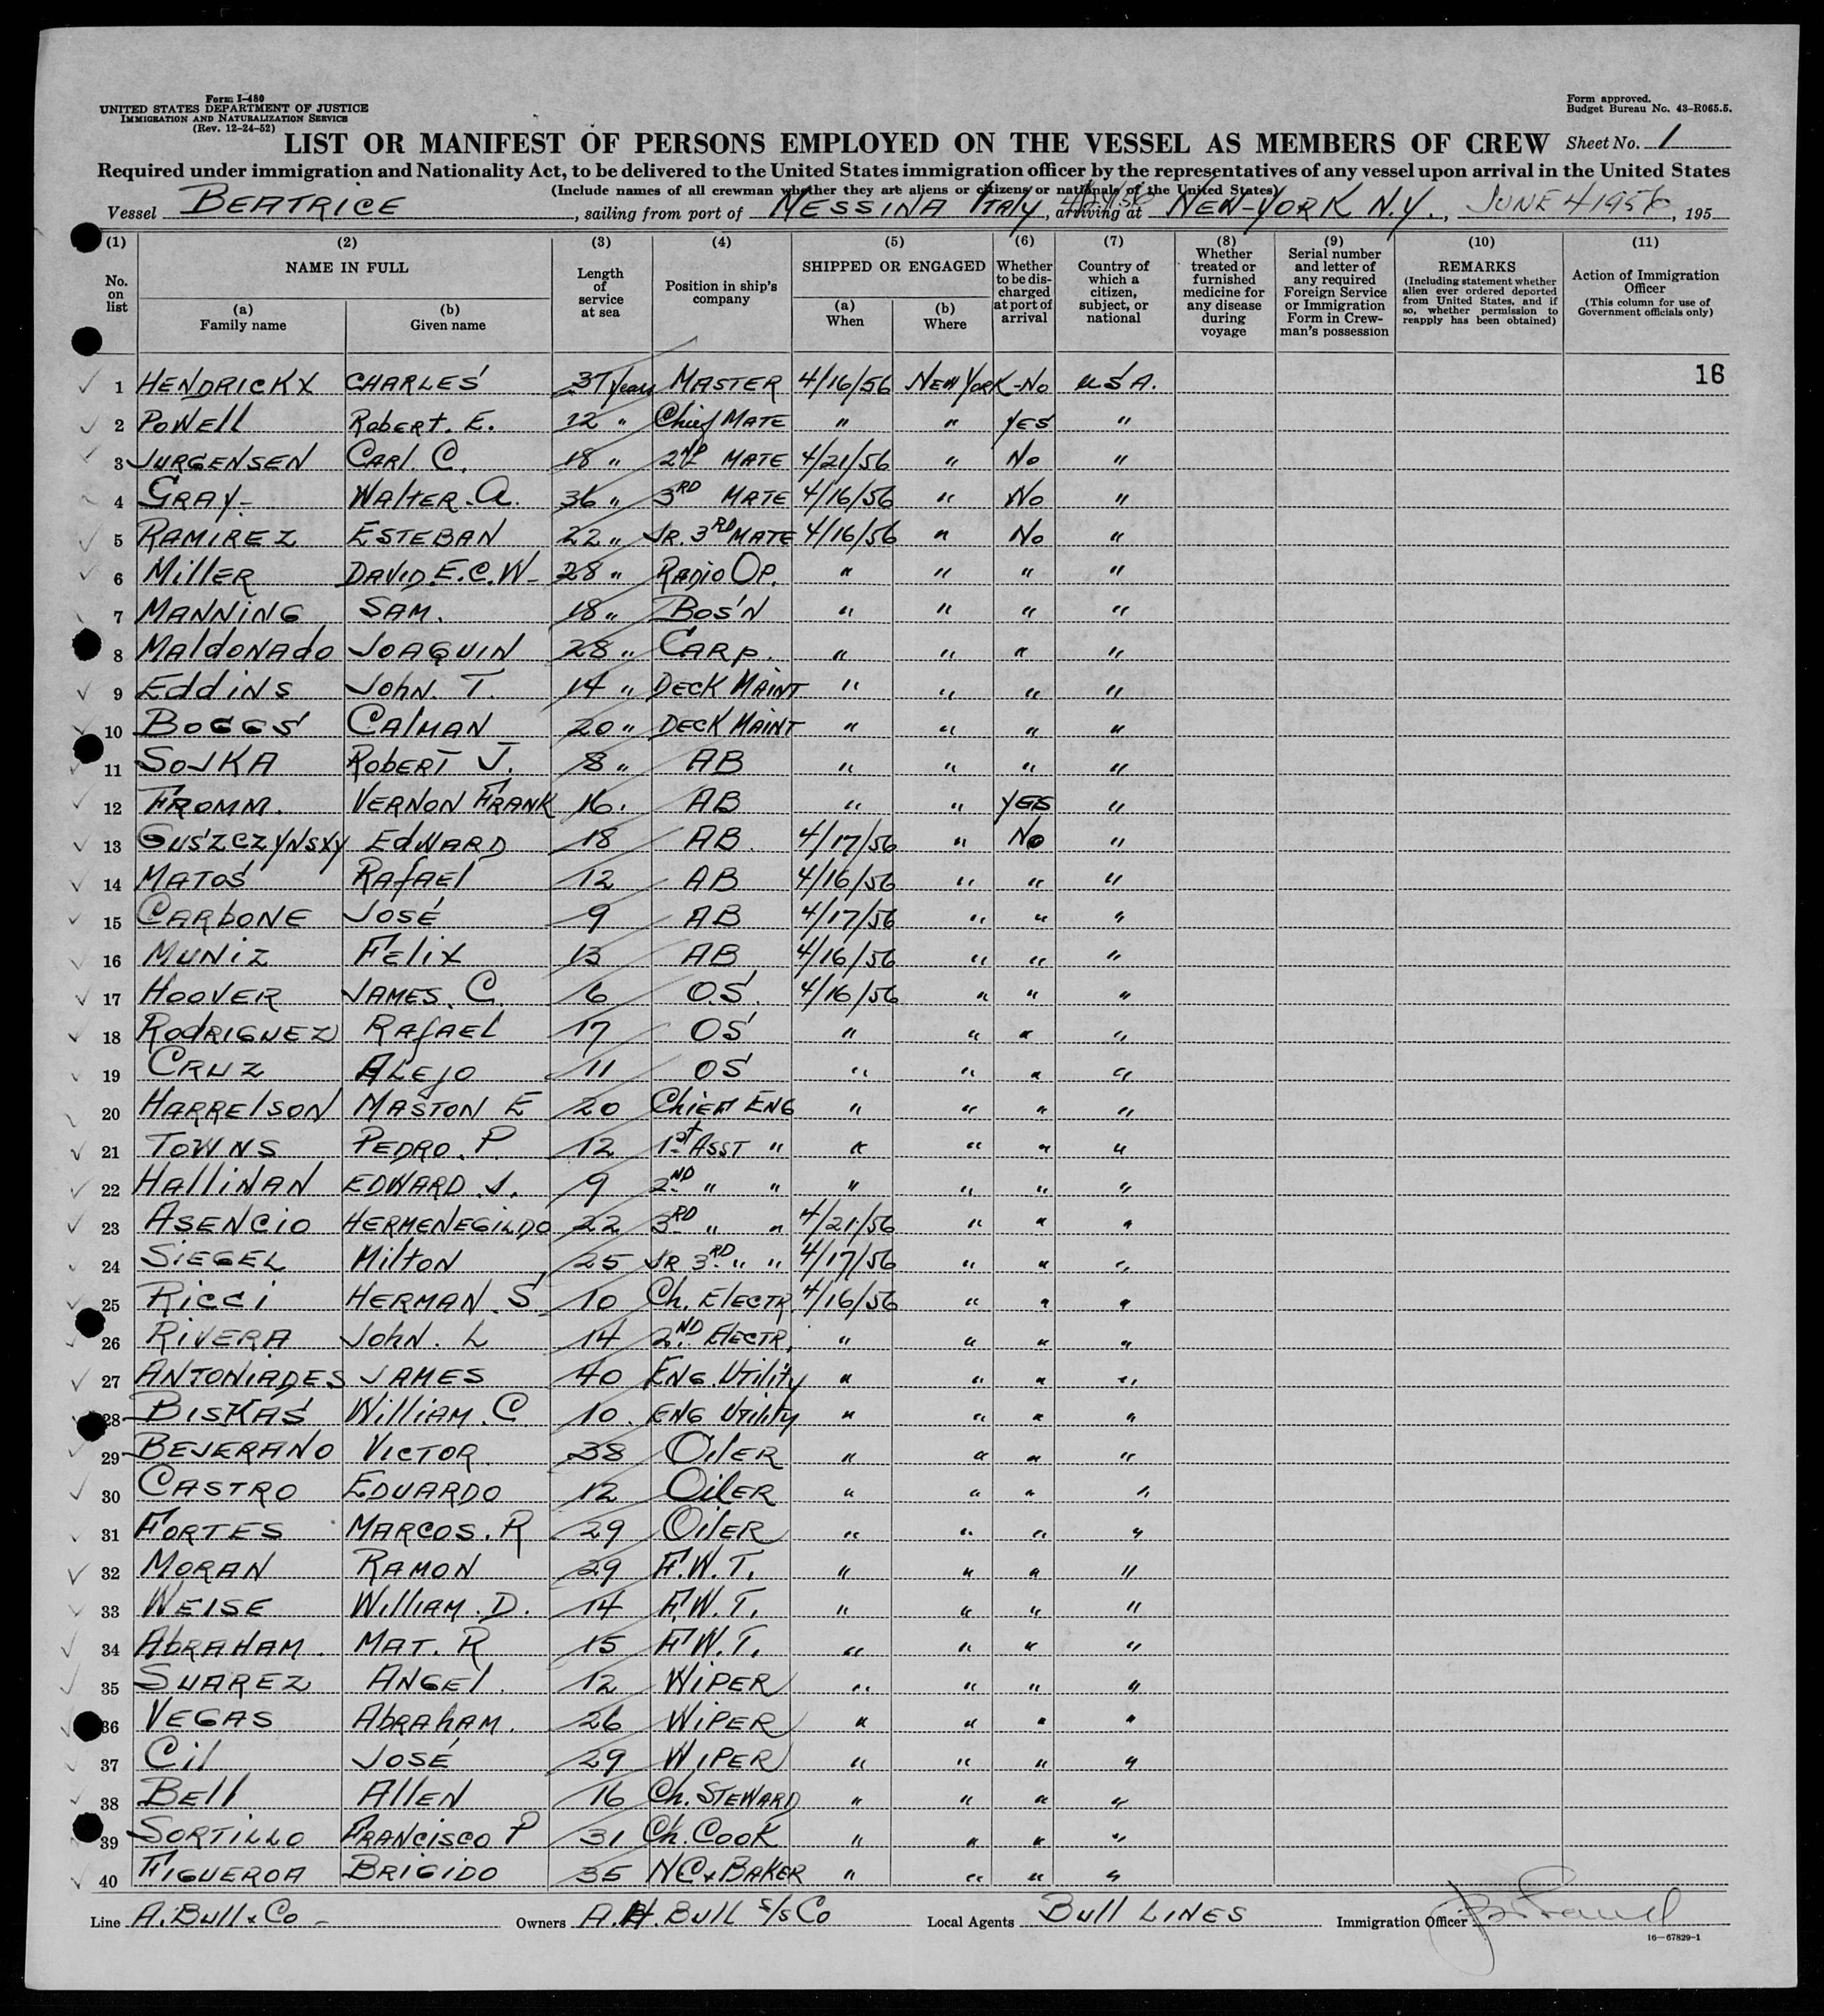 Form I-480
UNITED STATES DEPARTMENT OF JUSTICE
IMMIGRATION AND NATURALIZATION SERVICE
(Rev. 12-24-52)
Form approved.
Budget Bureau No. 43-R065.5.
LIST OR MANIFEST OF PERSONS EMPLOYED ON THE VESSEL AS MEMBERS OF CREW Sheet No. 1
Required under immigration and Nationality Act, to be delivered to the United States immigration officer by the representatives of any vessel upon arrival in the United States
(Include names of all crewman whether they are aliens or citizens or nationals of the United States)
Vessel BEATRICE, sailing from port of MESSINA ITALY, arriving at NEW-YORK N.Y., JUNE 4 1956, 195
(1) (2) (3) (4) (5) (6) (7) (8) (9) (10) (11)
No. on list
NAME IN FULL
(a) Family name
(b) Given name
Length of service at sea
Position in ship's company
SHIPPED OR ENGAGED
(a) When
(b) Where
Whether to be discharged at port of arrival
Country of which a citizen, subject, or national
Whether treated or furnished medicine for any disease during voyage
Serial number and letter of any required Foreign Service or Immigration Form in Crewman's possession
REMARKS
(Including statement whether alien ever ordered deported from United States, and if so, whether permission to reapply has been obtained)
Action of Immigration Officer
(This column for use of Government officials only)
16
1 HENDRICKX CHARLES 37 years MASTER 4/16/56 NEW YORK - No USA.
2 POWEll RobERT. E. 22 " Chief MATE " " YES "
3 JURGENSEN CARl. C. 18 " 2ND MATE 4/21/56 " No "
4 GRAY- WAlTER. A. 36 " 3RD MATE 4/16/56 " No "
5 RAMIREZ ESTEBAN 22 " JR. 3RD MATE 4/16/56 " No "
6 MillER DAVID. E. C. W- 28 " RADIO OP. " " " "
7 MANNING SAM. 18 " BOS'N " " " "
8 MAldONAdO JOAQUIN 28 " CARP. " " " "
9 EddiNS JOhN. T. 14 " DECK MAINT " " " "
10 BOGGS CAlMAN 20 " DECK MAINT " " " "
11 SOJKA RObERT J. 8 " AB " " " "
12 FROMM. VERNON FRANK 16. AB " " YES "
13 GUSZCZYNSXY EdWARD 18 AB. 4/17/56 " No "
14 MATOS RAfAEl 12 AB 4/16/56 " " "
15 CARbONE JOSÉ 9 AB 4/17/56 " " "
16 MUNIZ FEliX 13 AB 4/16/56 " " "
17 HOOVER JAMES. C. 6 O.S. 4/16/56 " " "
18 ROdRIGNEZ RAfAEL 17 OS " " " "
19 CRUZ ALEJO 11 OS " " " "
20 HARRElSON MASTON E 20 ChiEF ENG " " " "
21 TOWNS PEDRO. P. 12 1st ASST " " " " "
22 HAlliNAN EDWARD. J. 9 2ND " " " " " "
23 ASENCIO HERMENEGILDO 22 3RD " " 4/21/56 " " "
24 SIEGEL MilTON 25 JR 3RD " " 4/17/56 " " "
25 RiCCi HERMAN. S. 10 Ch. ElECTR. 4/16/56 " " "
26 RIVERA JOhN. L 14 2ND ElECTR. " " " "
27 ANTONIADES JAMES 40 ENG. UTility " " " "
28 BISKAS WilliAM. C 10. ENG UTility " " " "
29 BEJERANO VICTOR. 38 OilER " " " "
30 CASTRO EDUARDO 12 OilER " " " "
31 FORTES MARCOS. R 29 OilER " " " "
32 MORAN RAMON 29 F.W.T. " " " "
33 WEISE WilliAM. D. 14 F.W.T. " " " "
34 AbRAHAM. MAT. R 15 F.W.T. " " " "
35 SUAREZ ANGEl. 12 WiPER " " " "
36 VEGAS AbRAhAM. 26 WiPER " " " "
37 Cil JOSÉ 29 WIPER " " " "
38 BEll AllEN 16 Ch. STEWARD " " " "
39 SORTILLO FRANCISCO P 31 Ch. COOK " " " "
40 FIGUEROA BRIGIDO 35 NC+BAKER " " " "
Line A. Bull & Co - Owners A.H. BUll S/S Co Local Agents Bull LINES Immigration Officer
16-67829-1